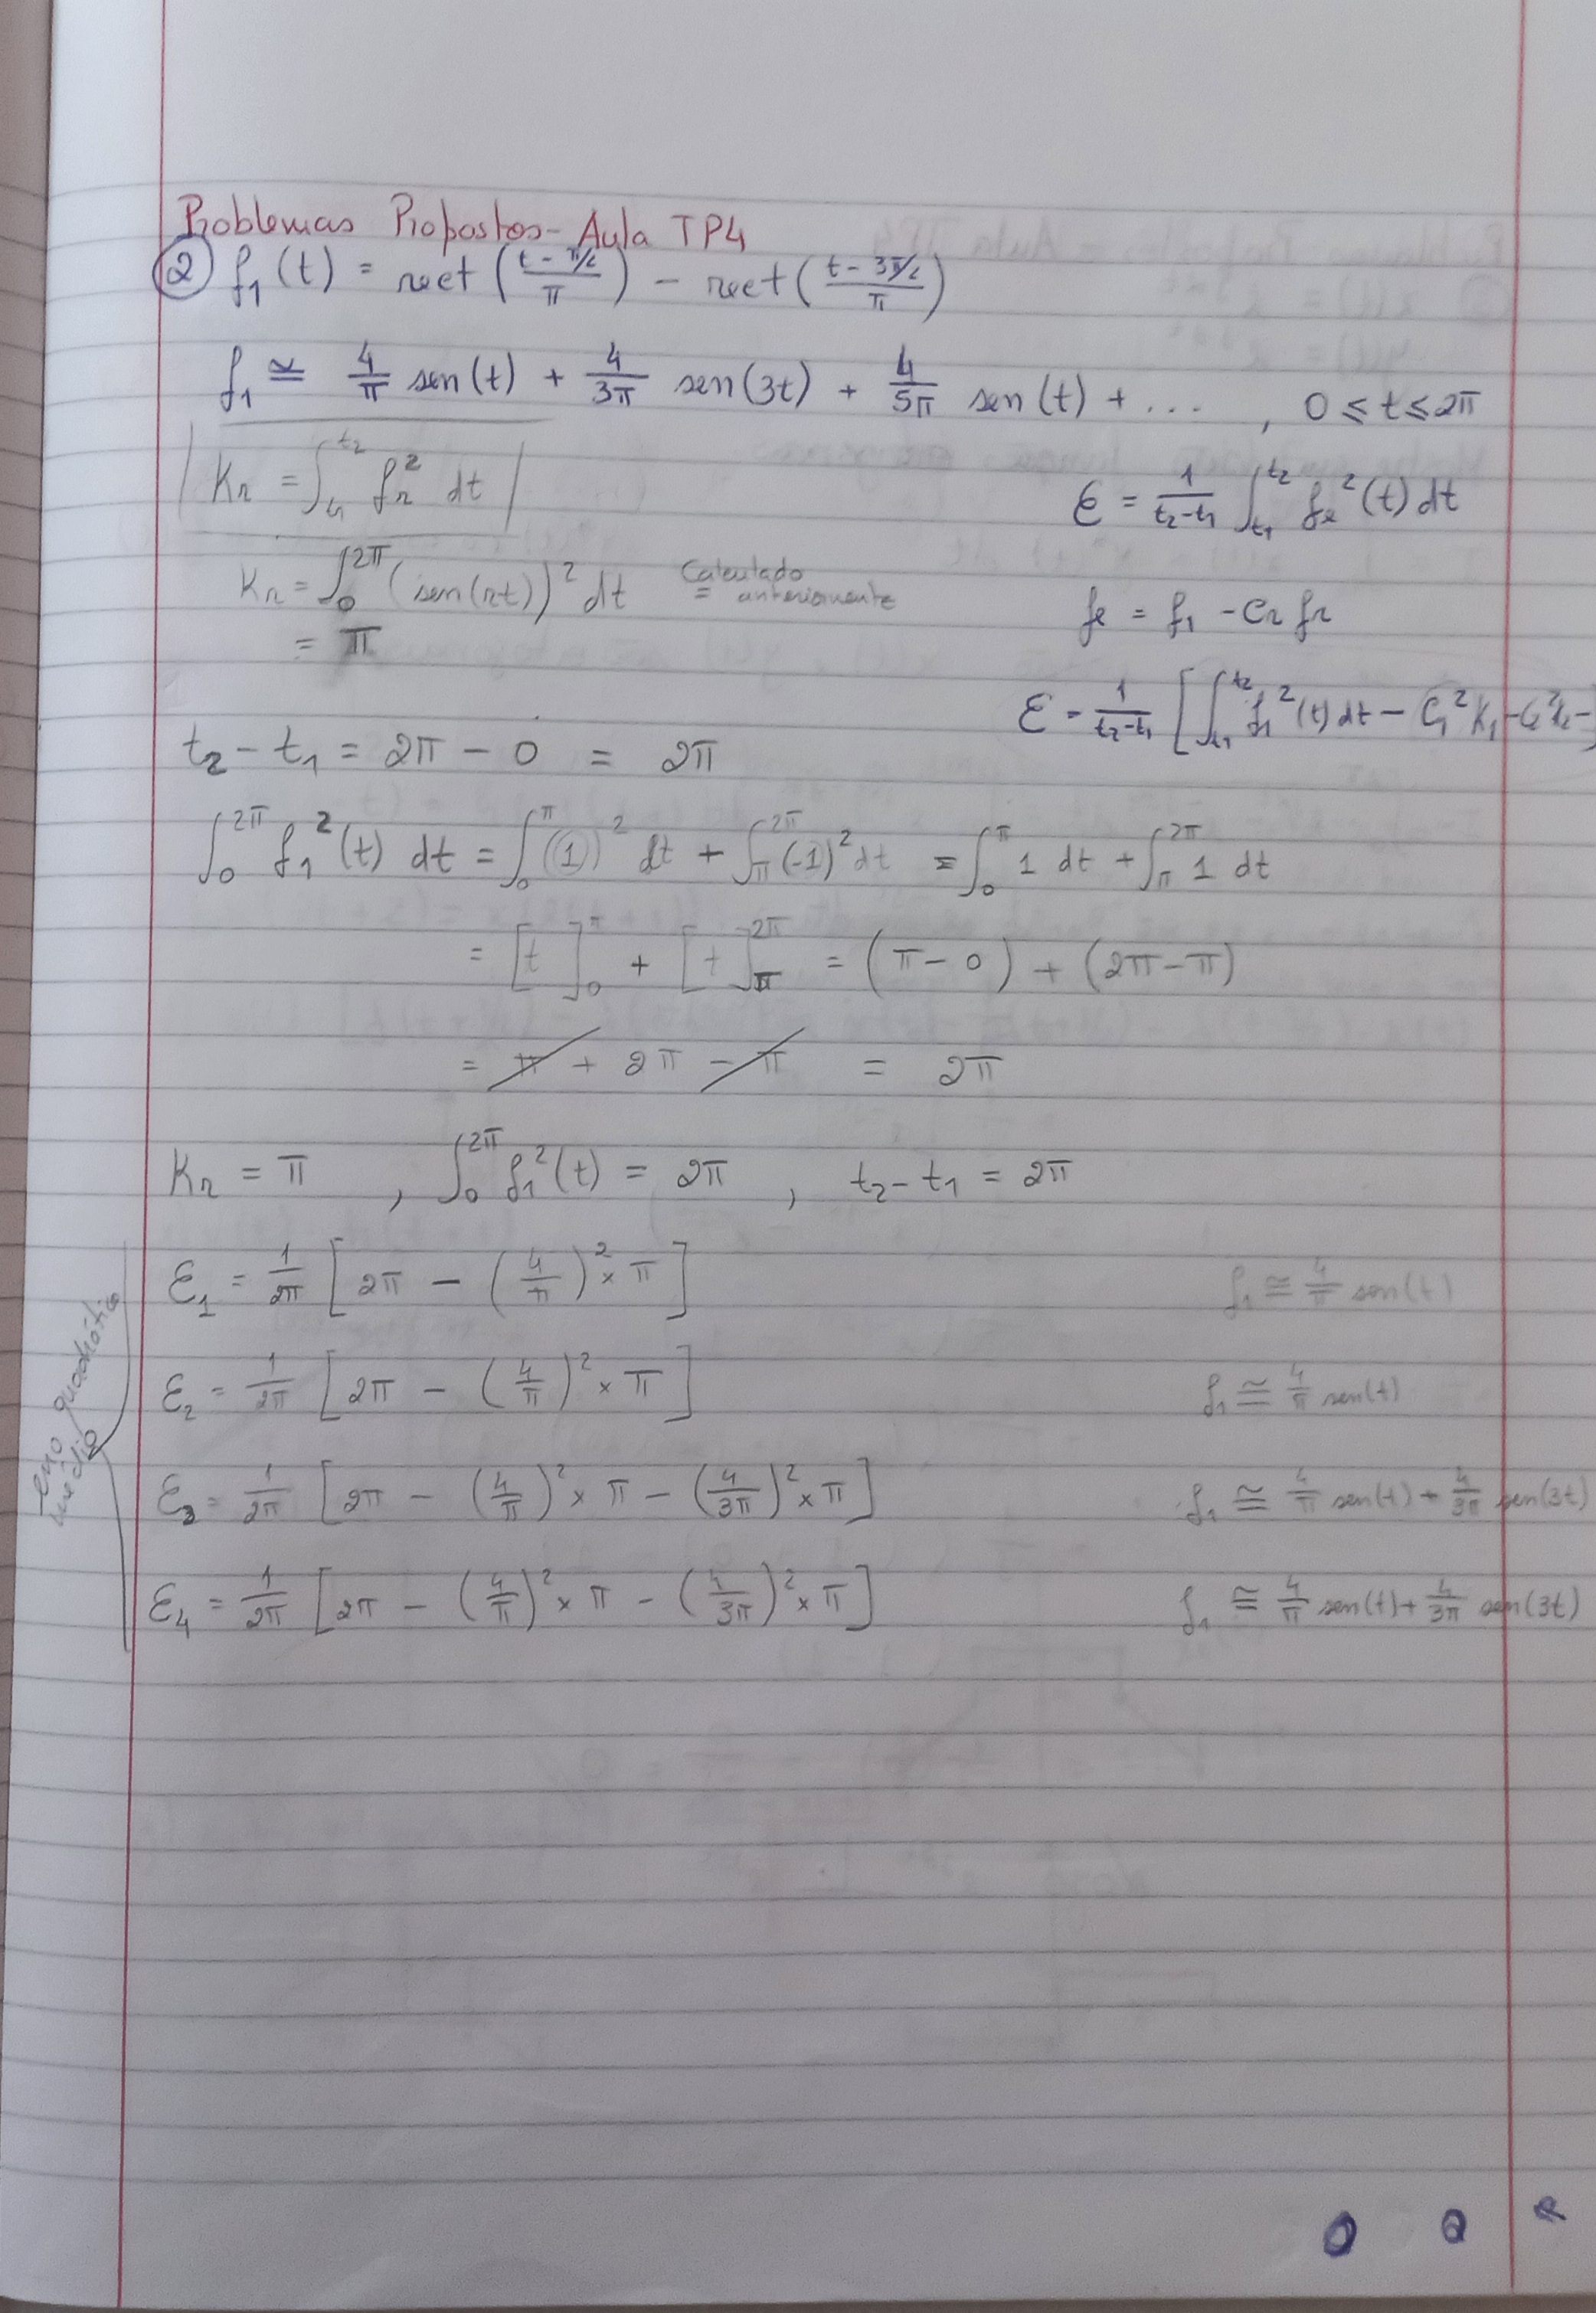 Problemas Propostos - Aula TP4
② f₁(t) = rect((t - π/2)/π) - rect((t - 3π/2)/π)
f₁ ≅ 4/π sen(t) + 4/3π sen(3t) + 4/5π sen(t) + ... , 0 ≤ t ≤ 2π
Kr = ∫_t₁^t₂ fr² dt
ε = 1/(t₂-t₁) ∫_t₁^t₂ fe²(t) dt
Kr = ∫_0^2π (sen(rt))² dt = Calculado anteriormente
= π
fe = f₁ - Cr fr
ε = 1/(t₂-t₁) [∫_t₁^t₂ f₁²(t) dt - C₁² K₁ - C₂² K₂ - ]
t₂ - t₁ = 2π - 0 = 2π
∫_0^2π f₁²(t) dt = ∫_0^π (1)² dt + ∫_π^2π (-1)² dt = ∫_0^π 1 dt + ∫_π^2π 1 dt
= [t]_0^π + [t]_π^2π = (π - 0) + (2π - π)
= π + 2π - π = 2π
Kr = π , ∫_0^2π f₁²(t) = 2π , t₂ - t₁ = 2π
erro quadrático médio
ε₁ = 1/2π [2π - (4/π)² × π] f₁ ≅ 4/π sen(t)
ε₂ = 1/2π [2π - (4/π)² × π] f₁ ≅ 4/π sen(t)
ε₃ = 1/2π [2π - (4/π)² × π - (4/3π)² × π] f₁ ≅ 4/π sen(t) + 4/3π sen(3t)
ε₄ = 1/2π [2π - (4/π)² × π - (4/3π)² × π] f₁ ≅ 4/π sen(t) + 4/3π sen(3t)